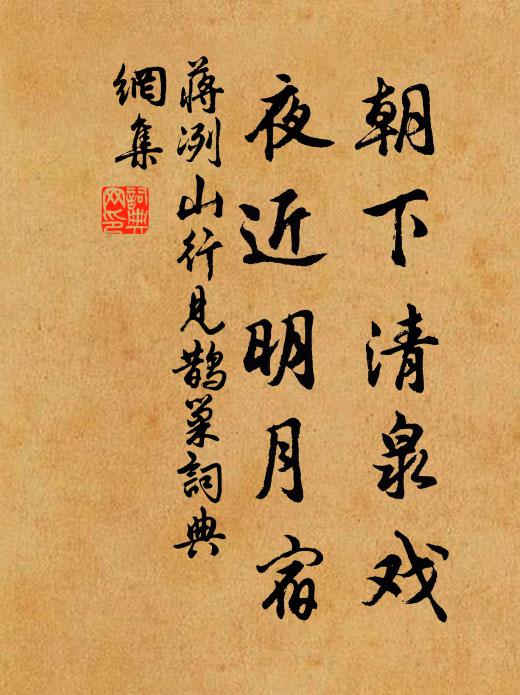 朝下清泉戏
夜近明月宿
蒋冽山行见鹊巢词典
網集
詞典網印